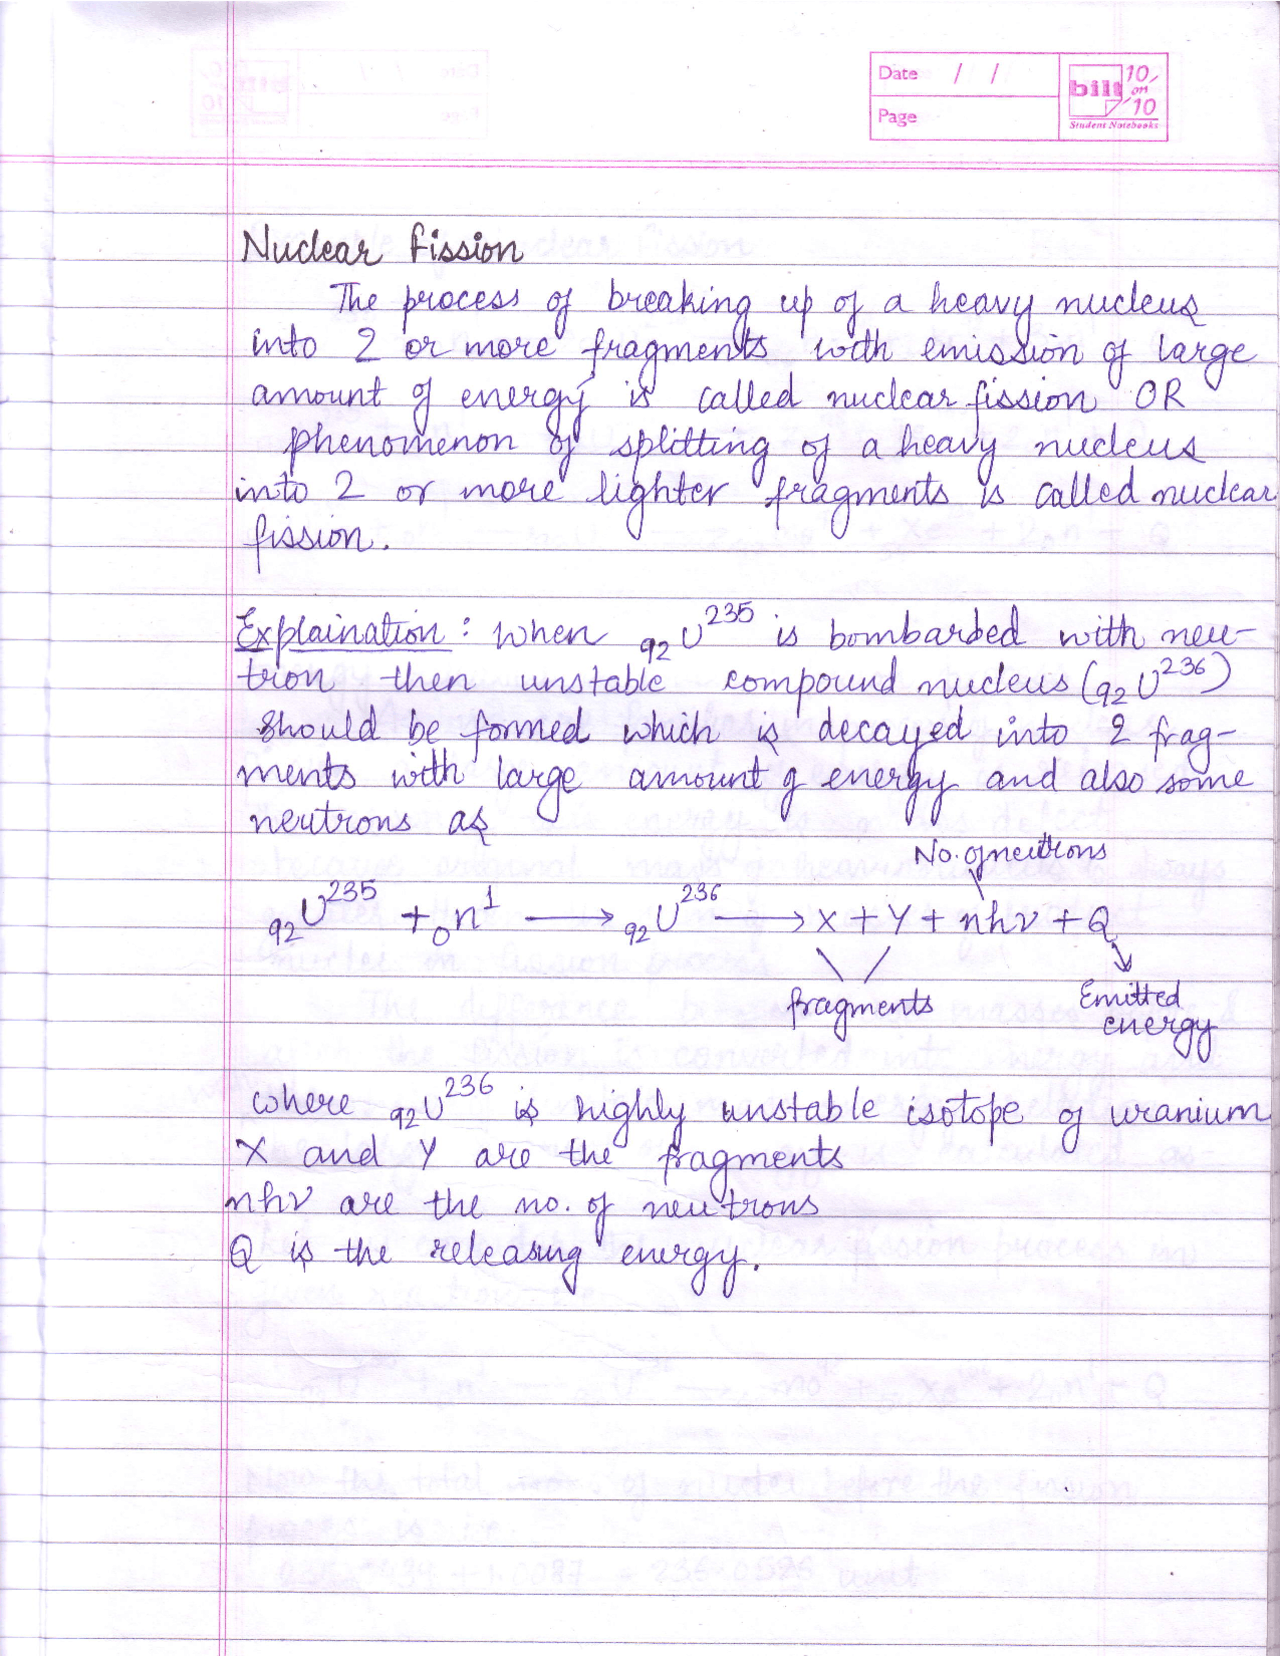 Date / /
Page
bilt 10 on 10
Student Notebooks
Nuclear Fission
The process of breaking up of a heavy nucleus
into 2 or more fragments with emission of large
amount of energy is called nuclear fission OR
phenomenon of splitting of a heavy nucleus
into 2 or more lighter fragments is called nuclear
fission.
Explaination : When ₉₂U²³⁵ is bombarded with neu-
tron then unstable compound nucleus (₉₂U²³⁶)
should be formed which is decayed into 2 frag-
ments with large amount of energy and also some
neutrons as
No. of neutrons
₉₂U²³⁵ + ₀n¹ → ₉₂U²³⁶ → X + Y + nhν + Q
fragments
Emitted
energy
where ₉₂U²³⁶ is highly unstable isotope of uranium
X and Y are the fragments
nhν are the no. of neutrons
Q is the releasing energy.